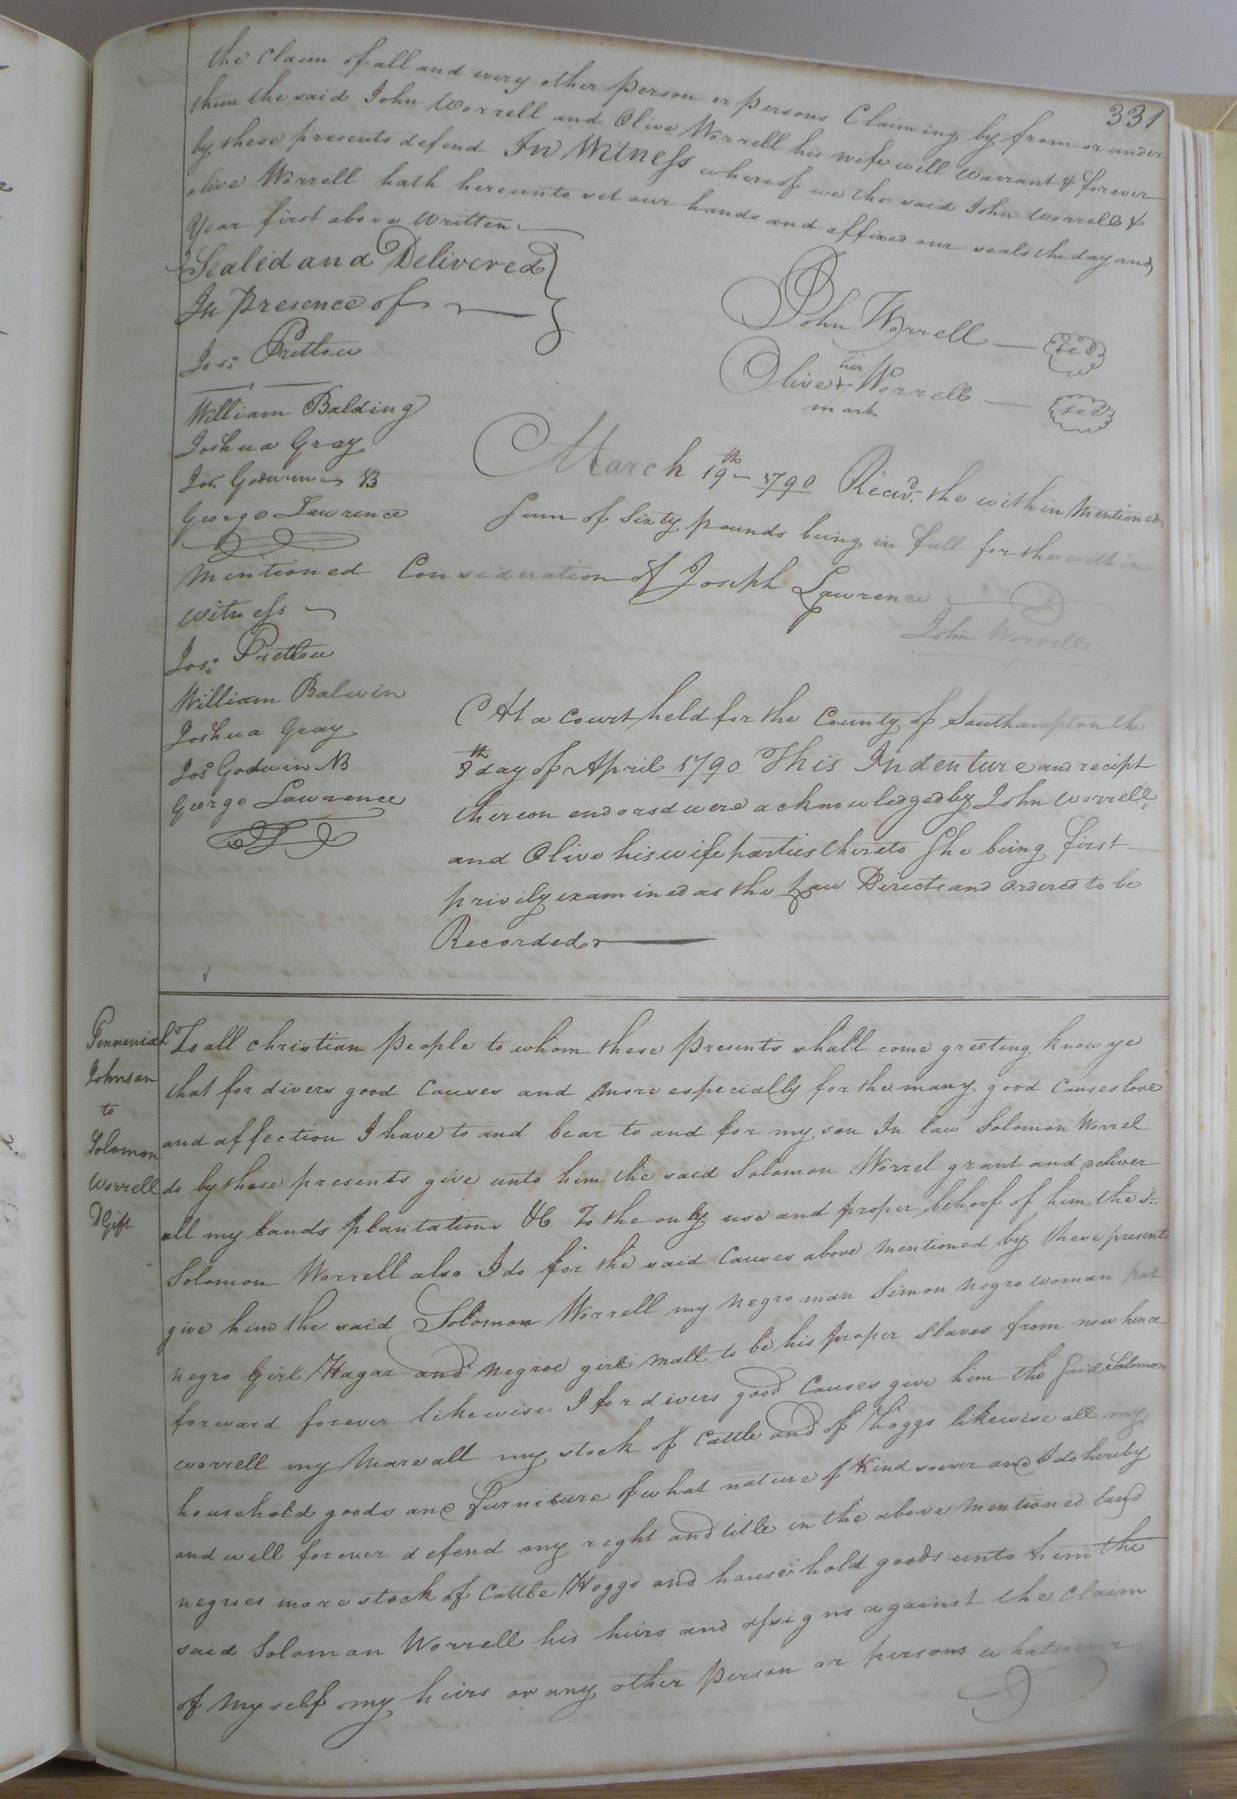 331
the Claim of all and every other Person or Persons Claiming by from or under
them the said John Worrell and Olive Worrell his wife will Warrant & forever
by these presents defend In Witness whereof we the said John Worrell &
olive Worrell hath hereunto set our hands and affixed our seals the day and
Year first above Written
Sealed and Delivered
In Presence of
John Worrell
Jos:
Olive + Worrell
her
mark
William Balding
Joshua Gray
Jos. Godwin
George Lawrence
March 19th 1790 Recivd. the within Mentioned
Sum of Sixty pounds being in full for the within
mentioned Consideration of Joseph Lawrence
John Worrell
witness
Jos:
William Balwin
Joshua Gray
Jos Godwin
George Lawrence
At a Court held for the County of Southampton the
8th day of April 1790 This Indenture and recipt
thereon endorsd were acknowledged by John Worrell
and Olive his wife parties thereto She being first
privily examined as the Law Directs and ordered to be
Recorded
Johnson
to
Solomon
Worrell
Gift
To all christian People to whom these Presents shall come greeting know ye
that for divers good Causes and more especially for the many good Causes love
and affection I have to and bear to and for my son In law Solomon Worrel
do by these presents give unto him the said Solomon Worrel grant and deliver
all my Lands plantations &C To the only use and proper behoof of him the sd.
Solomon Worrell also I do for the said Causes above mentioned by these presents
give him the said Solomon Worrell my Negro man Simon negro woman pat
negro Girl Hagar and negroe girl mall to be his proper Slaves from now hence
forward forever likewise I for divers good Causes give him the Said Solomon
worrell my Mare all my stock of Cattle and of Hoggs likewise all my
household goods and furniture of what nature of Kind soever and I do hereby
and will forever defend my right and title in the above mentioned land
negroes more stock of Cattle Hoggs and household goods unto him the
said Soloman Worrell his heirs and assigns against the Claim
of My self my heirs or any other Person or persons whatsoever